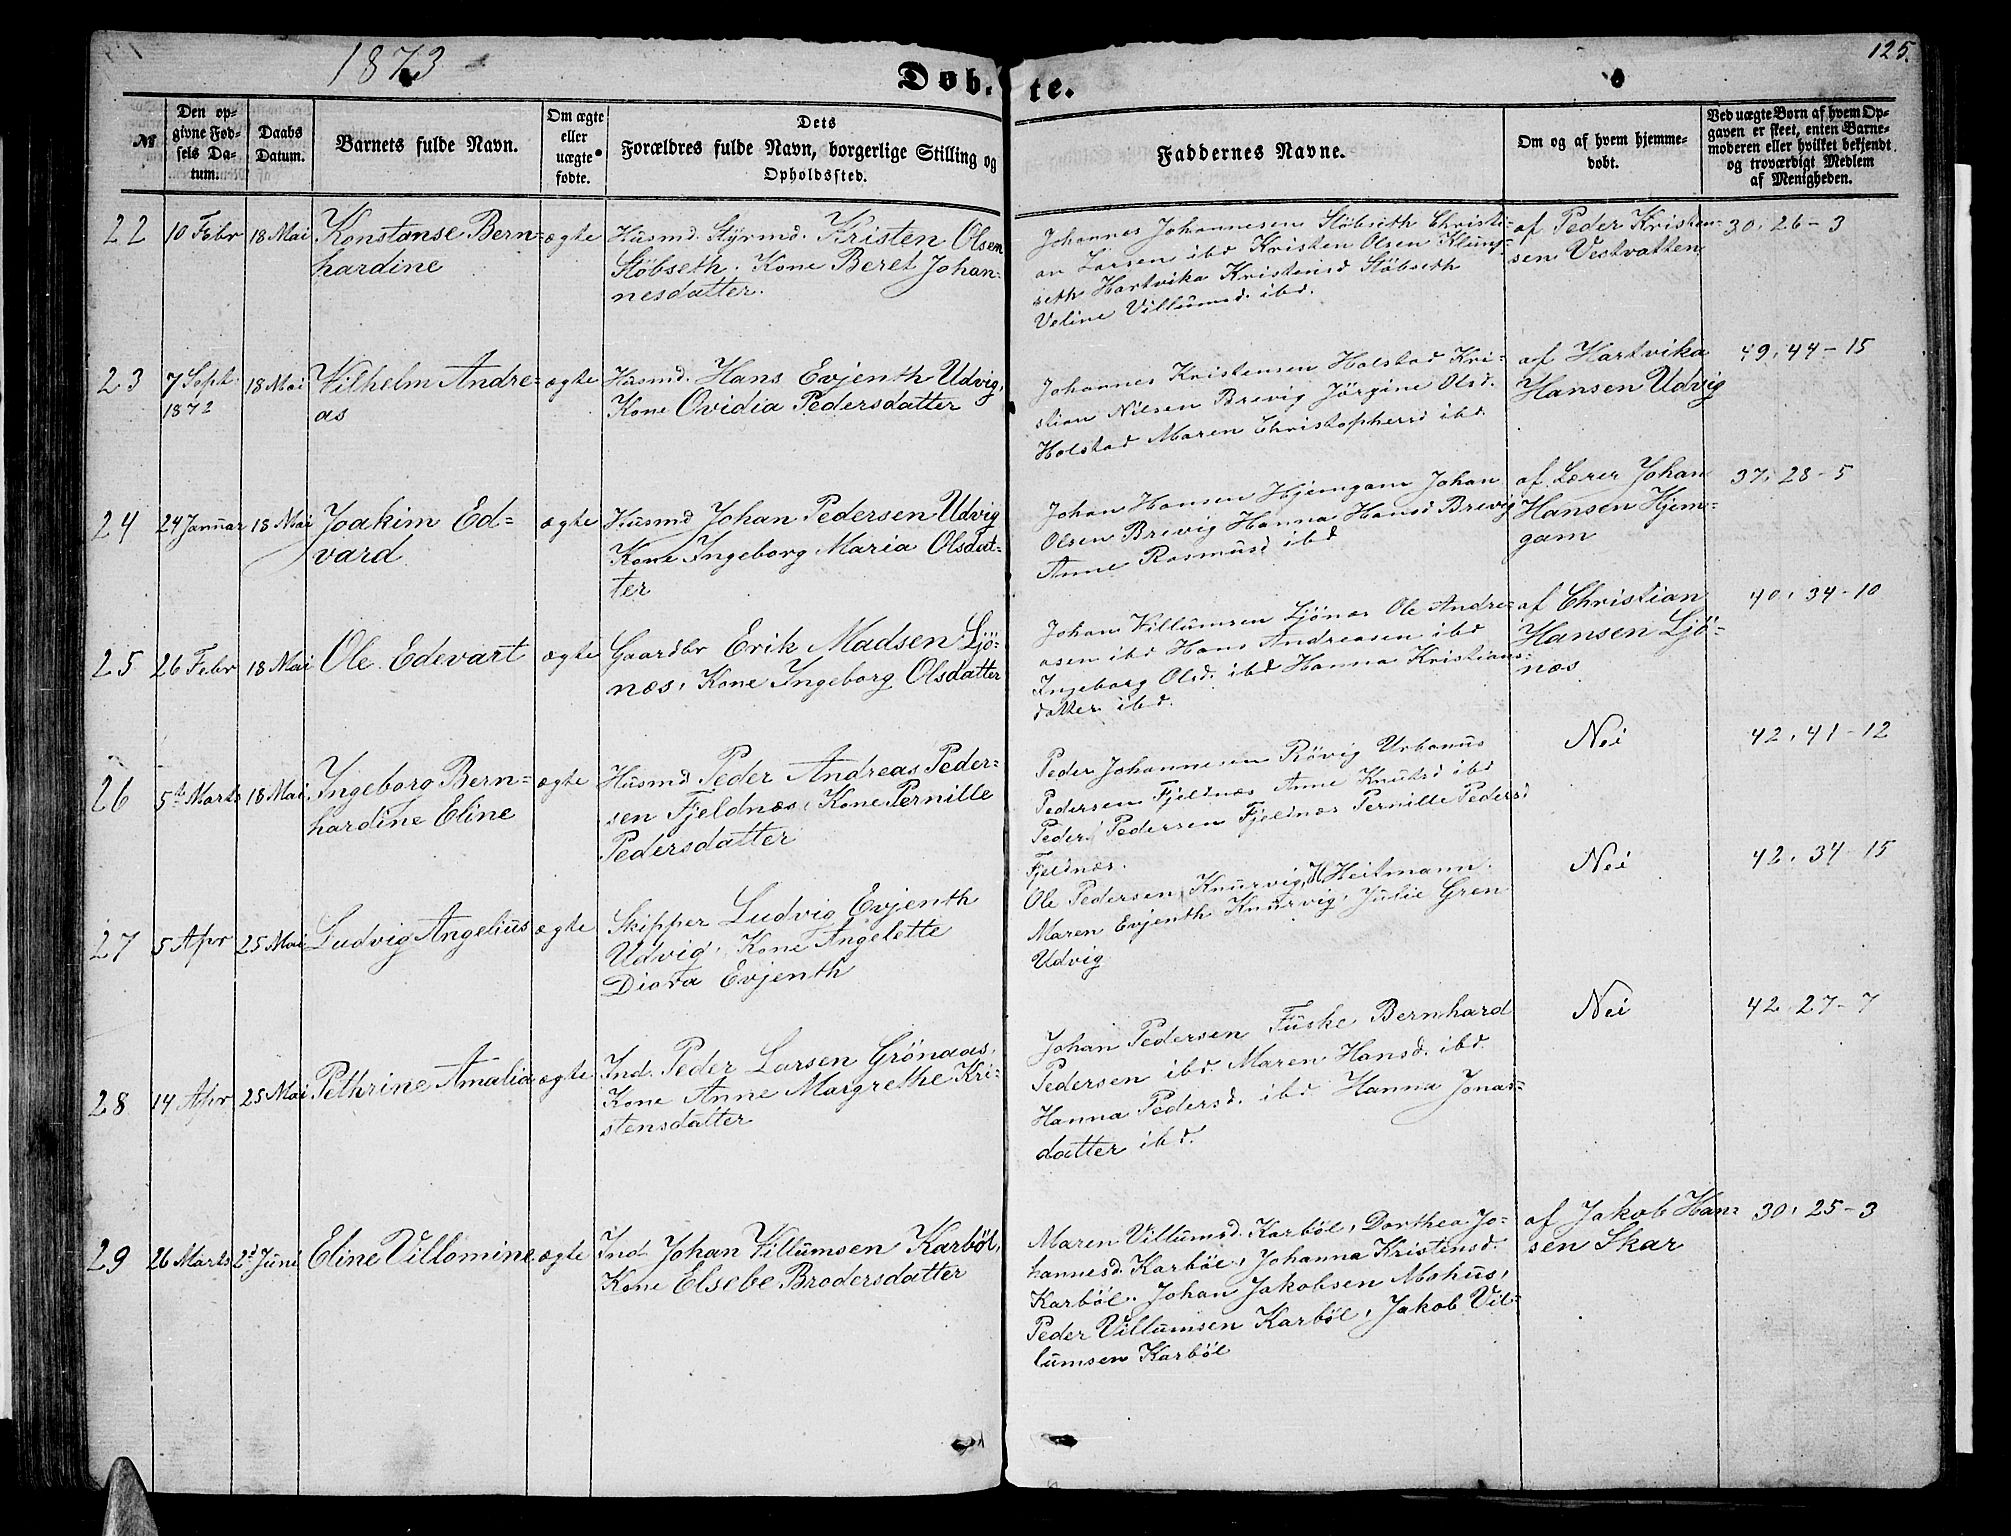 1873
125.
Døb-
te.
№
Den op-
givne Fød-
sels Da-
tum.
Daabs
Datum.
Barnets fulde Navn.
Om ægte
eller
uægte
fødte.
Dets
Forældres fulde Navn, borgerlige Stilling og
Opholdssted.
Faddernes Navne.
Om og af hvem hjemme-
døbt.
Ved uægte Børn af hvem Op-
gaven er skeet, enten Barne-
moderen eller hvilket bekjendt
og troværdigt Medlem
af Menigheden.
22
10 Febr
18 Mai
Konstanse Bern-
hardine
ægte
Husmd. Styrmd. Kristen Olsen
Støbseth. Kone Beret Johan-
nesdatter.
Johannes Johannesen Støbseth Christi-
an Larsen ibd Kristen Olsen Klung-
seth Hartvika Kristensd Støbseth
Veline Villumsd. ibd.
af Peder Kristen-
sen Vestvatten
30, 26-3
23
7 Sept.
1872
18 Mai
Vilhelm Andre-
as
ægte
Husmd. Hans Evjenth Udvig,
Kone Ovidia Pedersdatter
Johannes Kristensen Holstad Kri-
stian Nilsen Brevig Jörgine Olsd.
Holstad Maren Christophersd ibd
af Hartvika
Hansen Udvig
49, 44-15
24
24 Januar
18 Mai
Joakim Ed-
vard
ægte
Husmd Johan Pedersen Udvig
Kone Ingeborg Maria Olsdat-
ter
Johan Hansen Hjemgam Johan
Olsen Brevig Hanna Hansd Brevig
Anne Rasmusd ibd
af Lærer Johan
Hansen Hjem-
gam
37, 28-5
25
26 Febr
18 Mai
Ole Edevart
ægte
Gaardbr Erik Madsen Ljö-
næs, Kone Ingeborg Olsdatter
Johan Villumsen Ljönæs Ole Andre-
asen ibd Hans Andreasen ibd
Ingeborg Olsd. ibd Hanna Kristians-
datter ibd.
af Christian
Hansen Ljö-
næs
40, 34-10
26
5te Marts
18 Mai
Ingeborg Bern-
hardine Eline
ægte
Husmd Peder Andreas Peder-
sen Fjeldnæs, Kone Pernille
Pedersdatter
Peder Johannesen Rövig Urbanus
Pedersen Fjeldnæs Anne Knutsd ibd
Peder Pedersen Fjeldnæs Pernille Pedersd
Fjeldnæs.
Nei
42, 41-12
27
5 Apr
25 Mai
Ludvig Angelius
ægte
Skipper Ludvig Evjenth
Udvig, Kone Angelette
Diora Evjenth
Ole Pedersen Knurvig, H Heitmann.
Maren Evjenth Knurvig, Julie Gren
Udvig
Nei
42, 34-15
28
14 Apr
25 Mai
Pethrine Amalia
ægte
Ind. Peder Larsen Grönaas,
Kone Anne Margrethe Kri-
stensdatter
Johan Pedersen Füske Bernhard
Pedersen ibd. Maren Hansd. ibd.
Hanna Pedersd. ibd Hanna Jonas-
datter ibd.
Nei
42, 27-7
29
26 Marts
2d Juni
Eline Villomine
ægte
Ind Johan Villumsen Karböl,
Kone Elsebe Brodersdatter
Maren Villumsd. Karböl, Dorthea Jo-
hannesd. Karböl, Johanna Kristensd.
Karböl. Johan Jakobsen Mohus,
Peder Villumsen Karböl, Jakob Vil-
lumsen Karböl
af Jakob Han-
sen Skar
30, 25-3